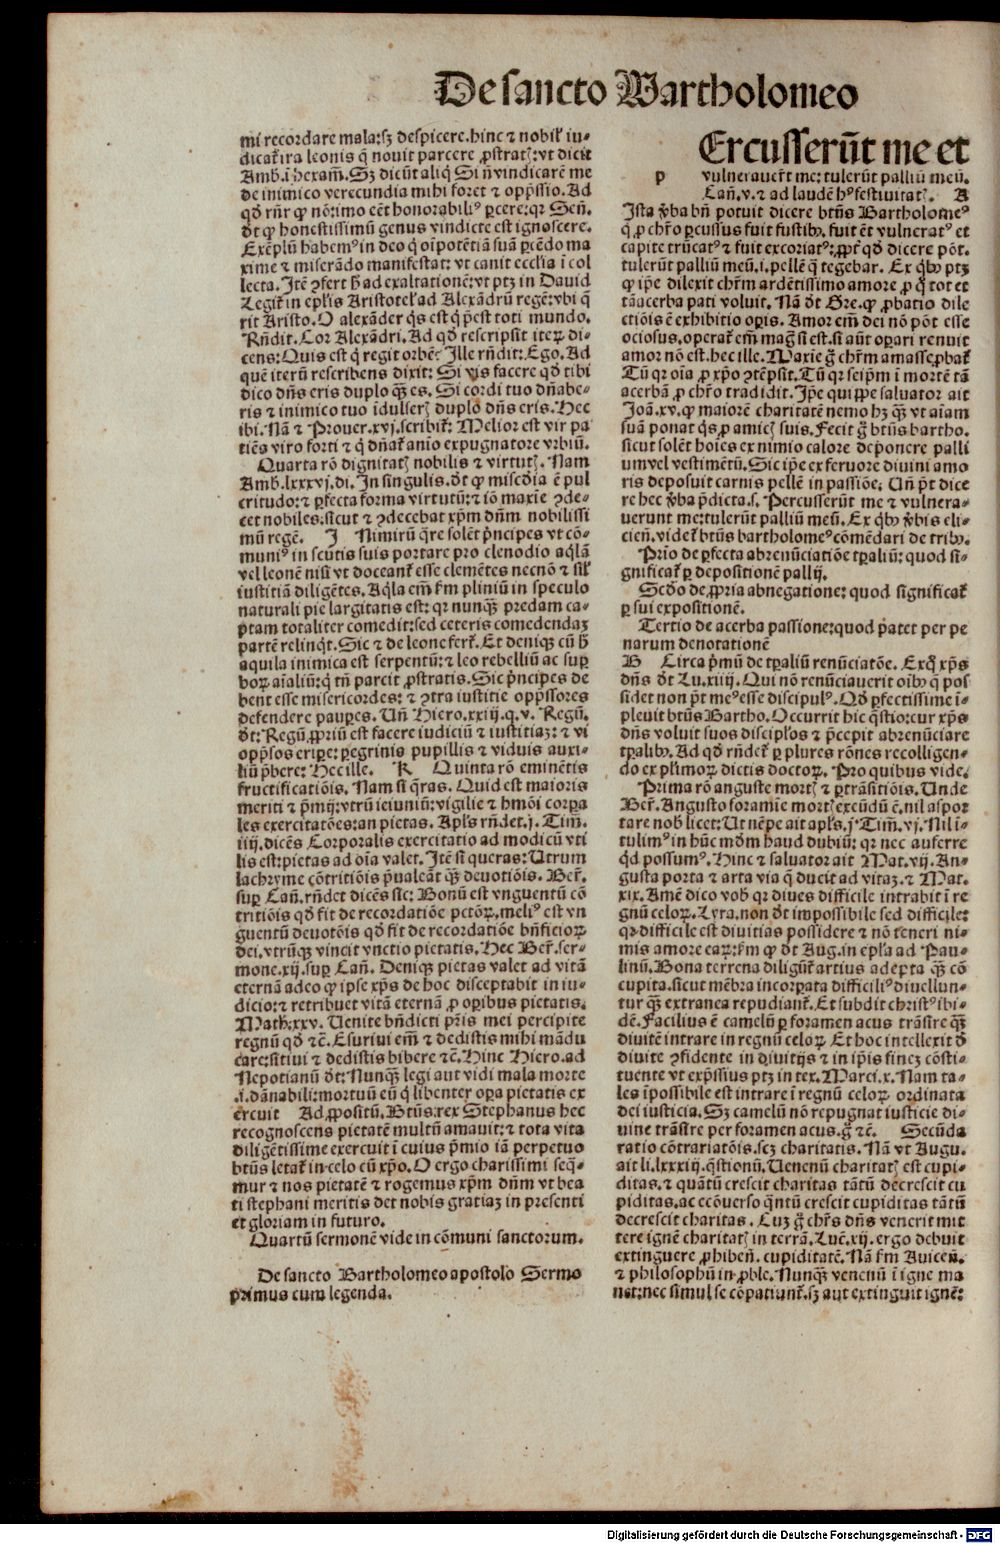 De sancto Bartholomeo
mi recordare mala: sꝫ despicere. hinc ⁊ nobil̉ iu⸗
dicat᷑ ira leonis q̄ nouit parcere ꝓstratꝭ: vt dicit
Amb. ī hexam̄. Sꝫ dicūt aliq̄ Si nō vindicarē me
de inimico verecundia mihi foret ⁊ opp̄ssio. Ad
qd̄ rn̄r ꝙ nō: imo eēt honorabiliꝰ ꝑcere: qꝛ Sen̄.
dt̄ ꝙ honestissimū genus vindicte est ignoscere.
Exēplū habemꝰ in deo q̄ oīpotētiā suā ꝑcēdo ma
xime ⁊ miserādo manifestat: vt canit ecclīa ī col
lecta. Itē ꝯfert h̄ ad exaltationē: vt ptꝫ in Dauid
Legit᷑ in epl̄is Aristotel̉ ad Alexādrū regē: vbi q̄
rit Aristo. O alexāder q̄s est q̄ p̄est toti mundo.
Rn̄dit. Cor Alexādri. Ad qd̄ rescripsit iteꝝ di⸗
cens: Quis est q̄ regit orbē: Ille rn̄dit: Ego. Ad
quē iterū rescribens dixit: Si vis facere qd̄ tibi
dico dn̄s eris duplo q̄ꝫ es. Si cordi tuo dn̄abe⸗
ris ⁊ inimico tuo īdulserꝭ duplo dn̄s eris. Hec
ibi. Nā ⁊ Prouer. xvj. scribit᷑: Melior est vir pa
tiēs viro forti ⁊ q̄ dn̄at᷑ aīo expugnatore vrbiū.
Quarta rō dignitatꝭ nobilis ⁊ virtutꝭ. Nam
Amb. lxxxvj. di. In singulis. dt̄ ꝙ misc̄dia ē pul
critudo: ⁊ ꝑfecta forma virtutū: ⁊ iō maxīe ꝯde⸗
cet nobiles: sicut ⁊ ꝯdecebat xp̄m dn̄m nobilissi
mū regē. J Nimirū q̄re solēt p̄ncipes vt cō⸗
muniꝰ in scutis suis portare pro clenodio aq̄lā
vel leonē nisi vt doceant᷑ esse clemētes necnō ⁊ sil̉
iustitiā diligētes. Aq̄la em̄ ẜm pliniū in speculo
naturali pie largitatis est: qꝛ nunqꝫ predam ca⸗
ptam totaliter comedit: sed ceteris comedendaꝫ
partē relinq̄t. Sic ⁊ de leone fert᷑. Et deniqꝫ cū h̄
aquila inimica est serpentū: ⁊ leo rebelliū ac suꝑ
boꝝ aīaliū: q̄ tn̄ parcit ꝓstratis. Sic p̄ncipes de
bent esse misericordes: ⁊ ꝯtra iustitie opp̄ssores
defendere pauꝑes. Un̄ Hiero. xxiij. q. v. Regū.
dt̄: Regū ꝓpriū est facere iudiciū ⁊ iustitiaꝫ: ⁊ vi
opp̄sos eriꝑe: ꝑegrinis pupillis ⁊ viduis auxi⸗
liū p̄bere: Hec ille. K Quinta rō eminētis
fructificatiōis. Nam si q̄ras. Quid est maioris
meriti ⁊ p̄mij: vtrū ieiuniū: vigilie ⁊ hmōi corꝑa
les exercitatōes: an pietas. Apl̄s rn̄det. j. Tim̄.
iiij. dicēs Corporalis exercitatio ad modicū vti
lis est: pietas ad oīa valet. Itē si queras: Utrum
lachryme cōtritiōis p̄ualeāt q̄ꝫ deuotiōis. Ber̄.
suꝑ Can̄. rn̄det dicēs sic: Bonū est vnguentū cō
tritiōis qd̄ fit de recordatiōe pctōꝝ. meliꝰ est vn
guentū deuotōis qd̄ fit de recordatiōe bn̄ficioꝝ
dei. vtrūqꝫ vincit vnctio pietatis. Hec Ber̄. ser⸗
mone. xij. suꝑ Can̄. Deniqꝫ pietas valet ad vitā
eternā adeo ꝙ ipse xp̄s de hoc disceptabit in iu⸗
dicio: ⁊ retribuet vitā eternā ꝓ oꝑibus pietatis.
Math. xxv. Uenite bn̄dicti p̄ris mei percipite
regnū qd̄ ⁊c̄. Esuriui em̄ ⁊ dedistis mihi mādu
care: sitiui ⁊ dedistis bibere ⁊c̄. Hinc Hiero. ad
Nepotianū dt̄: Nunqꝫ legi aut vidi mala morte
.i. dānabili: mortuū eū q̄ libenter oꝑa pietatis ex
ercuit Ad ꝓpositū. Btūs: rex Stephanus hec
recognoscens pietatē multū amauit: ⁊ tota vita
diligētissime exercuit ī cuius p̄mio iā perpetuo
btūs letat᷑ in celo cū xp̄o. O ergo charissimi seq̄⸗
mur ⁊ nos pietatē ⁊ rogemus xp̄m dn̄m vt bea
ti stephani meritis det nobis gratiaꝫ in presenti
et gloriam in futuro.
Quartū sermonē vide in cōmuni sanctorum.
De sancto Bartholomeo apostolo Sermo
primus cum legenda.
p
Ercusserūt me et
vulnerauer̄t me: tulerūt palliū meū.
Can̄. v. ⁊ ad laudē hꝰ festiuitatꝭ. A
Ista v̄ba bn̄ potuit dicere btūs Bartholomeꝰ
q̄ ꝓ chr̄o ꝑcussus fuit fustibꝫ. fuit ēt vulneratꝰ et
capite trūcatꝰ ⁊ fuit excoriatꝰ: ꝓpt̄ qd̄ dicere pōt.
tulerūt palliū meū. i. pellē q̄ tegebar. Ex q̄bꝫ ptꝫ
ꝙ ip̄e dilexit chr̄m ardētissimo amore ꝓ q̄ tot et
tā acerba pati voluit. Nā dt̄ Gre. ꝙ ꝓbatio dile
ctiōis ē exhibitio oꝑis. Amor em̄ dei nō pōt esse
ociosus. operat᷑ em̄ maḡ si est. si aūt oꝑari renuit
amor nō est. hec ille. Maxīe g̊ chr̄m amasse ꝓbat᷑
Tū qꝛ oīa ꝓ xp̄o ꝯtēpsit. Tū qꝛ seip̄m ī mortē tā
acerbā ꝓ chr̄o tradidit. Ip̄e quippe saluator ait
Joā. xv. ꝙ maiorē charitatē nemo hꝫ q̄ꝫ vt aīam
suā ponat q̄s ꝓ amicꝭ suis. Fecit g̊ btūs bartho.
sicut solēt hoīes ex nimio calore deponere palli
um vel vestimētū. Sic ip̄e ex feruore diuini amo
ris deposuit carnis pellē in passiōe. Un̄ p̄t dice
re hec v̄ba p̄dicta. s. Percusserūt me ⁊ vulnera⸗
uerunt me: tulerūt palliū meū. Ex q̄bꝫ v̄bis eli⸗
cien̄. videt᷑ btūs bartholomeꝰ cōmēdari de tribꝫ.
Prīo de ꝑfecta abrenūciatiōe tꝑaliū: quod si⸗
gnificat᷑ ꝑ depositionē pallij.
Scd̄o de ꝓpria abnegatione: quod significat᷑
ꝑ sui expositionē.
Tertio de acerba passione: quod p̄atet per pe
narum denotationē
B Circa p̄mū de tꝑaliū renūciatōe. Ex q̄ xp̄s
dn̄s dt̄ Lu. xiiij. Qui nō renūciauerit oībꝫ q̄ pos
sidet non p̄t meꝰ esse discipulꝰ. Qd̄ ꝑfectissime ī⸗
pleuit btūs Bartho. Occurrit hic q̄stio: cur xp̄s
dn̄s voluit suos disciplōs ⁊ p̄cepit abrenūciare
tꝑalibꝫ. Ad qd̄ rn̄det᷑ ꝑ plures rōnes recolligen⸗
do ex pl̄imoꝝ dictis doctoꝝ. Pro quibus vide.
Prima rō anguste mortꝭ ⁊ ꝑtrāsitiōis. Unde
Ber̄. Angusto foramīe mortꝭ excūdū ē. nil aspor
tare nob̄ licet: Ut nēpe ait apl̄s. j. Tim̄. vj. Nil ī⸗
tulimꝰ in hūc mūdm̄ haud dubiū: qꝛ nec auferre
q̄d possumꝰ. Hinc ⁊ saluator ait Mat. vij. An⸗
gusta porta ⁊ arta via q̄ ducit ad vitaꝫ. ⁊ Mat.
xix. Amē dico vob̄ qꝛ diues difficile intrabit ī re
gnū celoꝝ. Lyra. non dt̄ impossibile sed difficile:
qꝛ difficile est diuitias possidere ⁊ nō teneri ni⸗
mis amore eaꝝ: ẜm ꝙ dt̄ Aug. in epl̄a ad Pau⸗
linū. Bona terrena diligūt᷑ artius adepta q̄ꝫ cō
cupita. sicut mēbra incorꝑata difficiliꝰ diuellun⸗
tur q̄ꝫ extranea repudiant᷑. Et subdit christꝰ ibi⸗
dē. Facilius ē camelū ꝑ foramen acus trāsire q̄ꝫ
diuitē intrare in regnū celoꝝ Et hoc intellexit d̄
diuite ꝯfidente in diuitijs ⁊ in ip̄is fineꝫ cōsti⸗
tuente vt exp̄ssius ptꝫ in tex. Marci. x. Nam ta⸗
les īpossibile est intrare ī regnū celoꝝ ordinata
dei iusticia. Sꝫ camelū nō repugnat iusticie di⸗
uine trāsire per foramen acus. g̊ ⁊c̄. Secūda
ratio cōtrariatōis. scꝫ charitatis. Nā vt Augu.
ait li. lxxxiij. q̄stionū. Uenenū charitatꝭ est cupi⸗
ditas. ⁊ quātū crescit charitas tātū decrescit cu
piditas. ac ecōuerso q̄ntū crescit cupiditas tātū
decrescit charitas. Cuꝫ g̊ chr̄s dn̄s venerit mit
tere ignē charitatꝭ in terrā. Luc̄. xij. ergo debuit
extinguere ꝓhiben̄. cupiditatē. Nā ẜm Auicen̄.
⁊ philosophū in ꝓble. Nunqꝫ venenū ī igne ma
net: nec simul se cōpatiunt᷑. sꝫ aut extinguit ignē:
Digitalisierung gefördert durch die Deutsche Forschungsgemeinschaft - DFG